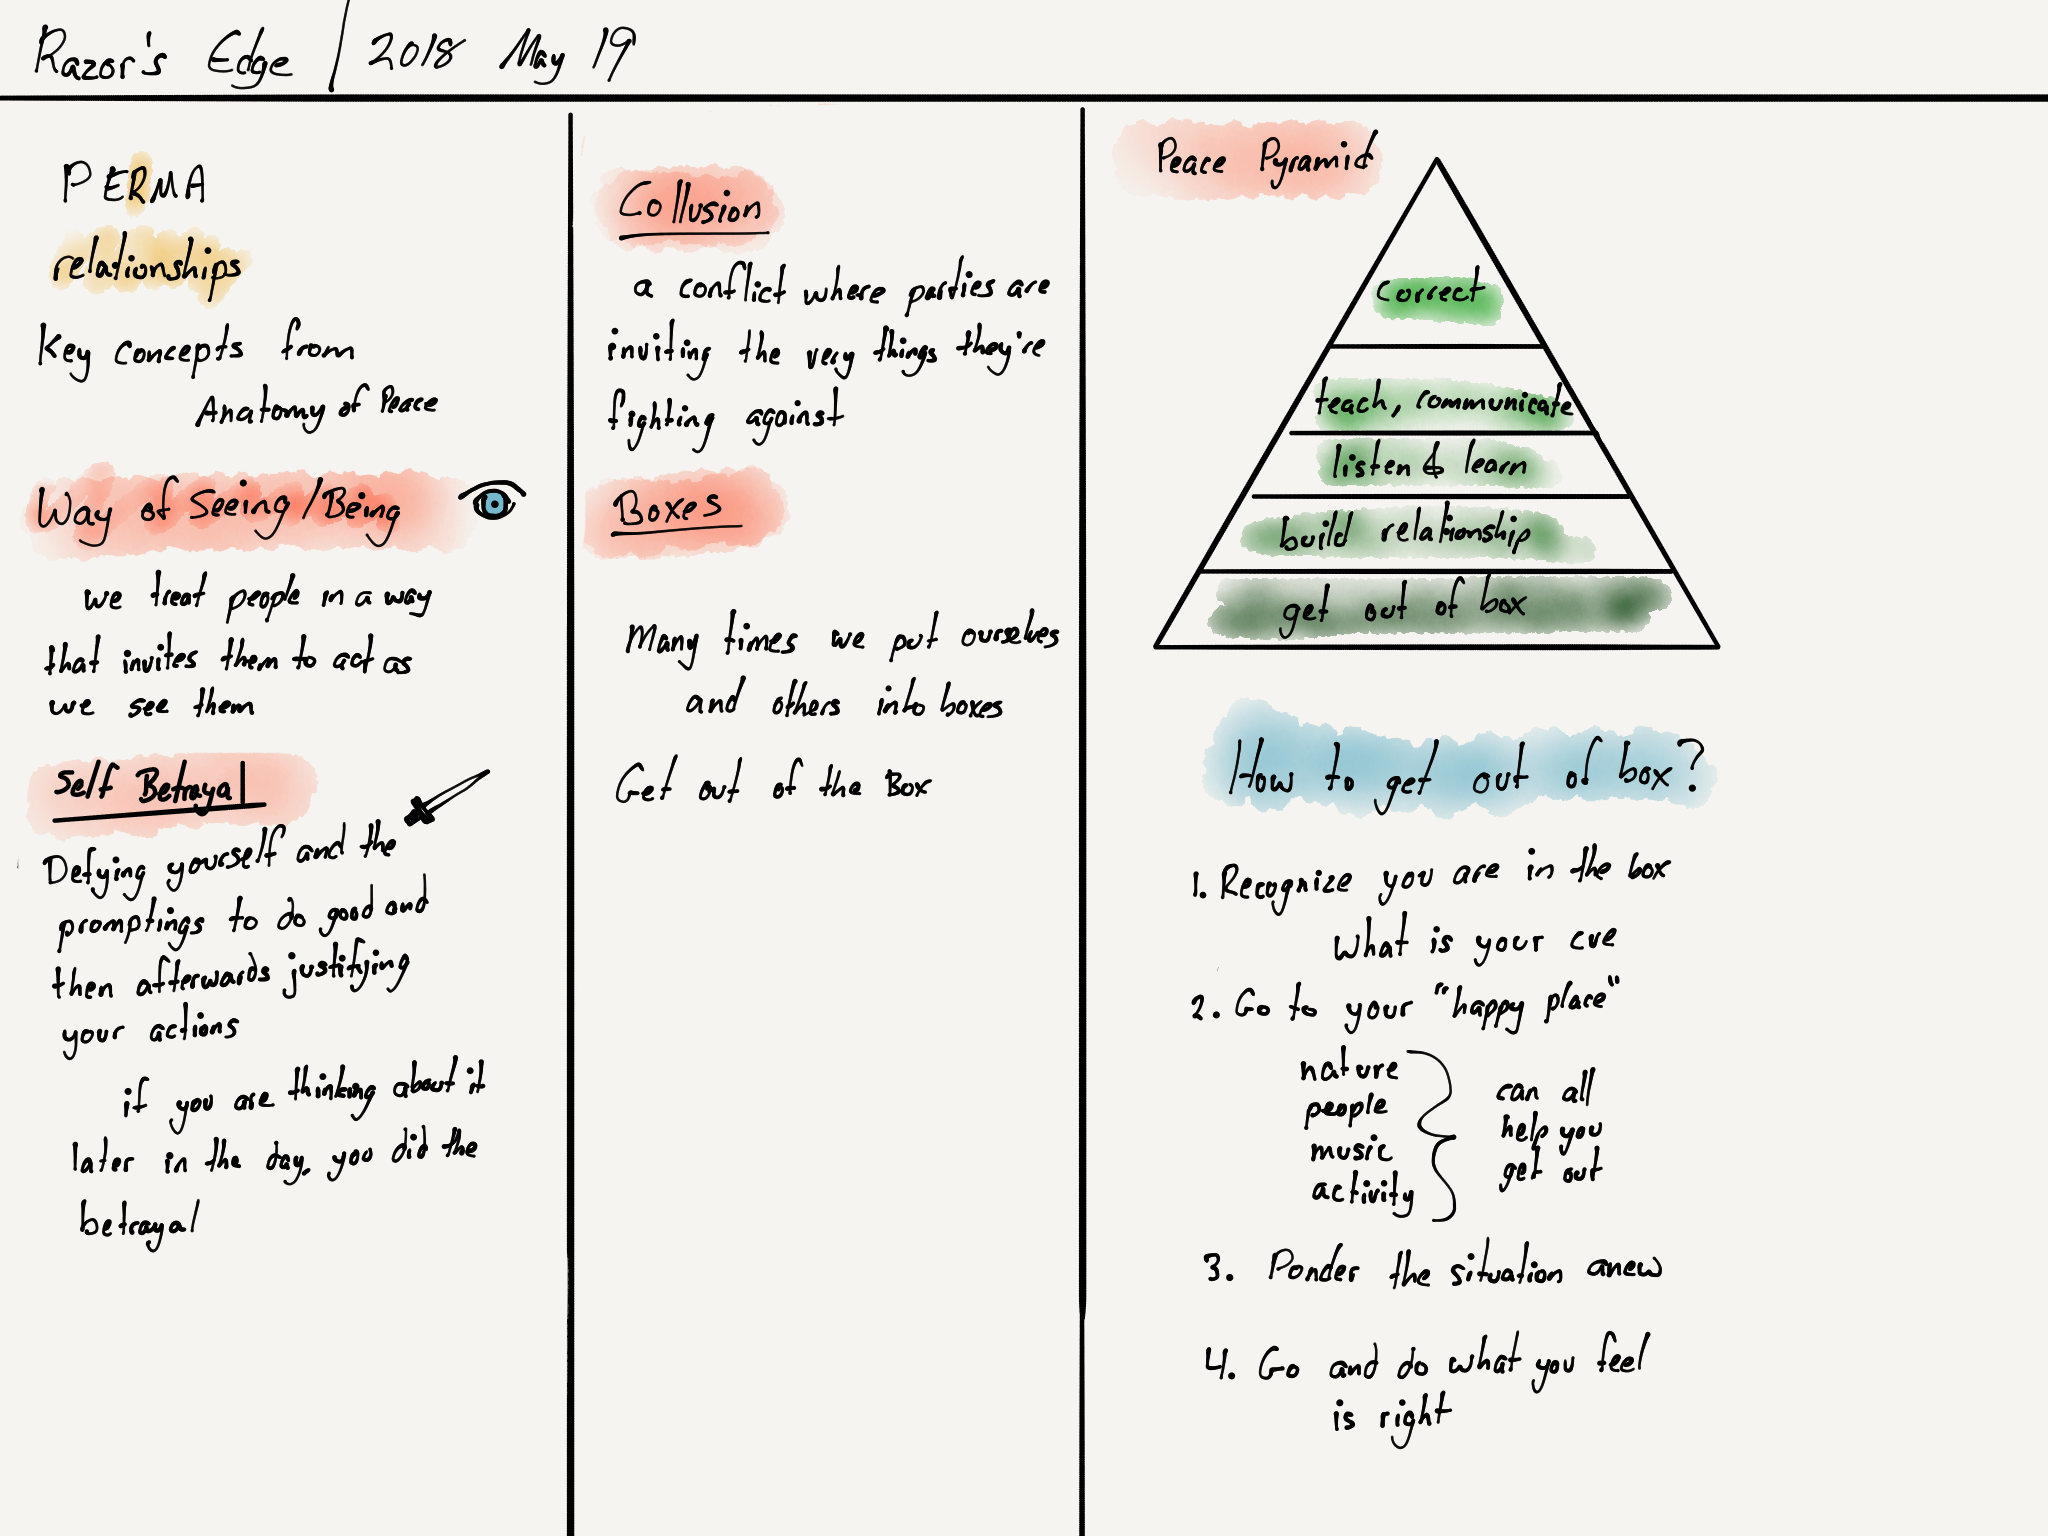 Razor's Edge / 2018 May 19
PERMA
relationships
Key concepts from
Anatomy of Peace
Way of Seeing/Being
we treat people in a way
that invites them to act as
we see them
Self Betrayal
Defying yourself and the
promptings to do good and
then afterwards justifying
your actions
if you are thinking about it
later in the day, you did the
betrayal
Collusion
a conflict where parties are
inviting the very things they're
fighting against
Boxes
Many times we put ourselves
and others into boxes
Get out of the Box
Peace Pyramid
correct
teach, communicate
listen & learn
build relationship
get out of box
How to get out of box?
1. Recognize you are in the box
What is your cue
2. Go to your "happy place"
nature
people
music
activity
can all
help you
get out
3. Ponder the situation anew
4. Go and do what you feel
is right